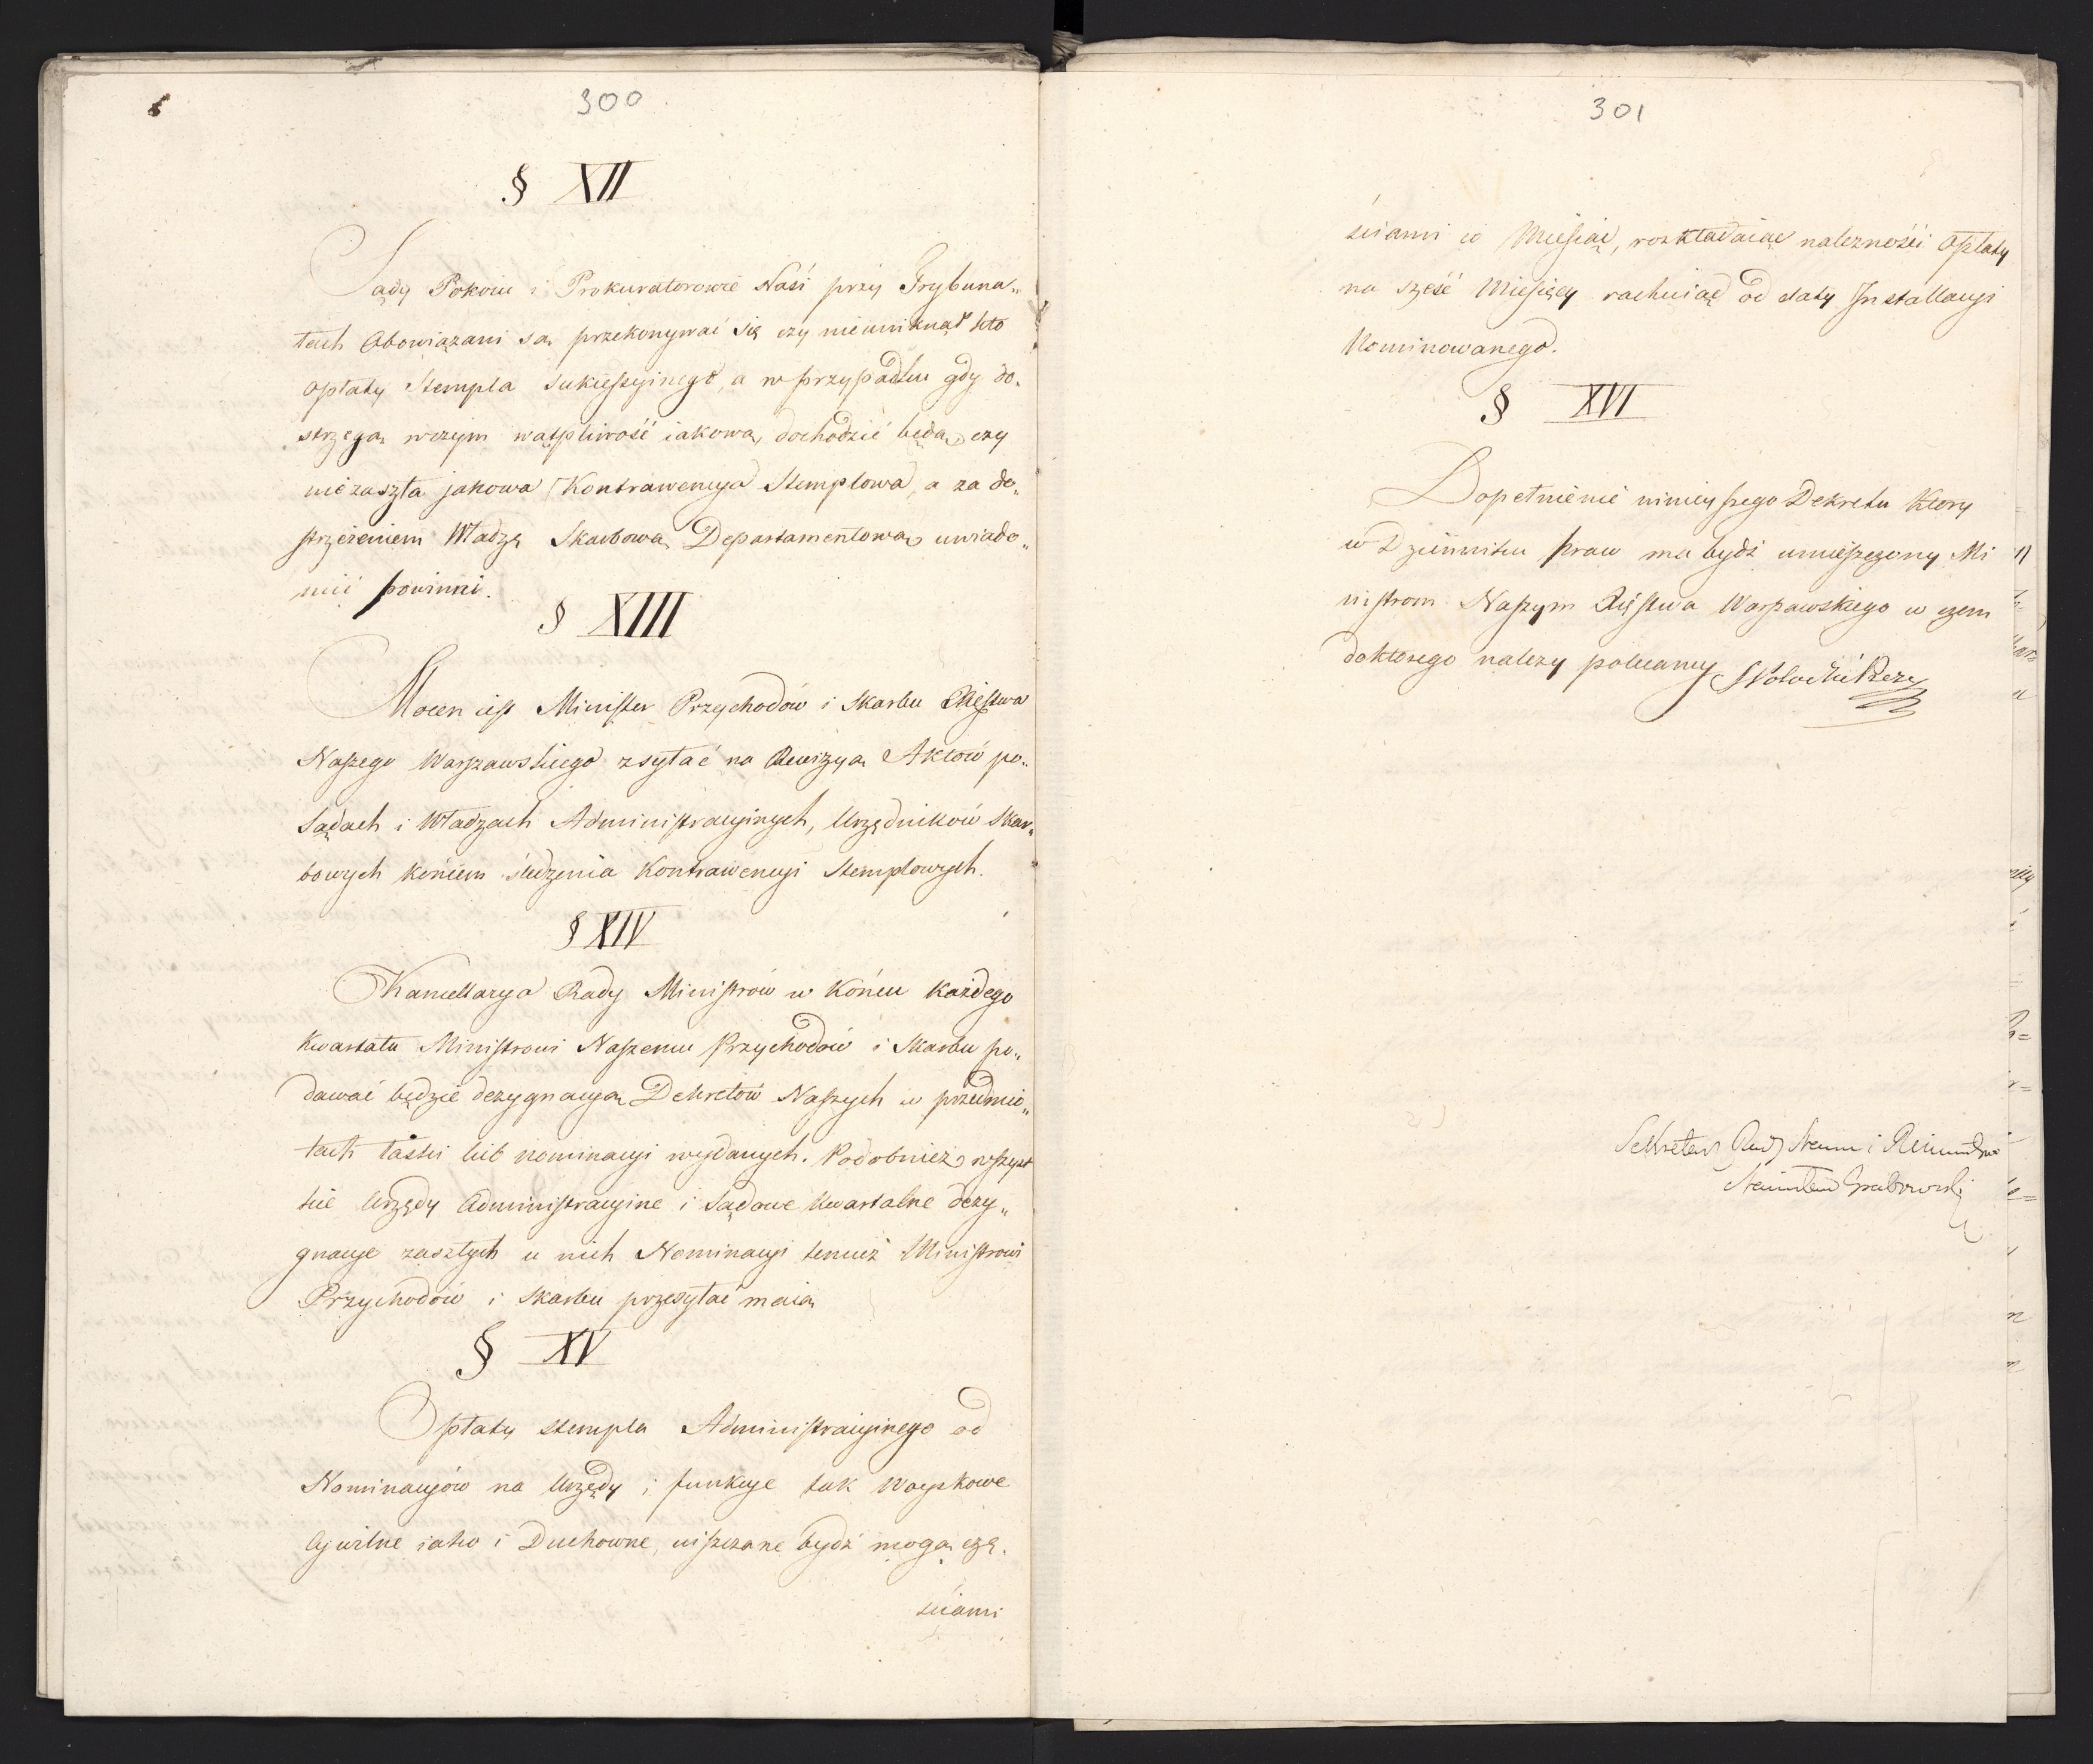 300
§ XII
Sądy Pokoiu i Prokuratorowie Nasi przy Trybuna„
łach obowiązani są przekonywać się czy nieuniknął kto
opłaty stempla sukcessyinego, a w przypadku gdy do„
strzegą wczym wątpliwość iakową, dochodzić będą, czy
nie zaszła jakowa Kontrawencya Stemplowa, a za do„
strzeżeniem Władzę Skarbową Departamentową uwiado„
mić powinni.
§ XIII
Mocen iest Minister Przychodów i Skarbu Xięstwa
Naszego Warszawskiego zsyłać na Rewizyą Aktów po„
Sądach i Władzach Administracyinych, Urzędników Skar„
bowych końcem śledzenia Kontrawencyi Stemplowych.
§ XIV
Kancellarya Rady Ministrów w końcu każdego
kwartału Ministrowi Naszemu Przychodów i Skarbu po„
dawać będzie dezygnacyą Dekretów Naszych w przedmio„
tach łaski lub nominacyi wydanych. Podobnież wszyst
kie Urzędy Administracyine i Sądowe kwartalne dezy„
gnacye zaszłych u nich Nominacyi temuż Ministrowi
Przychodów i Skarbu przesyłać maią
§ XV
Opłaty stempla Administracyinego od
Nominacyów na Urzędy i funkcye tak Woyskowe
Cywilne iako i Duchowne, uiszczane bydź mogą czę„
ściami
301
ściami co Miesiąc, rozkładaiąc należności opłaty
na sześć Miesięcy rachuiąc od daty Installacyi
Nominowanego.
§ XVI
Dopełnienie ninieyszego Dekretu który
w Dzienniku praw ma bydź umieszczony Mi
nistrom Naszym Xięstwa Warszawskiego w czem
doktórego należy polecamy
Sekretarz Rady Stanu i Ministrów
Stanisław Grabowski